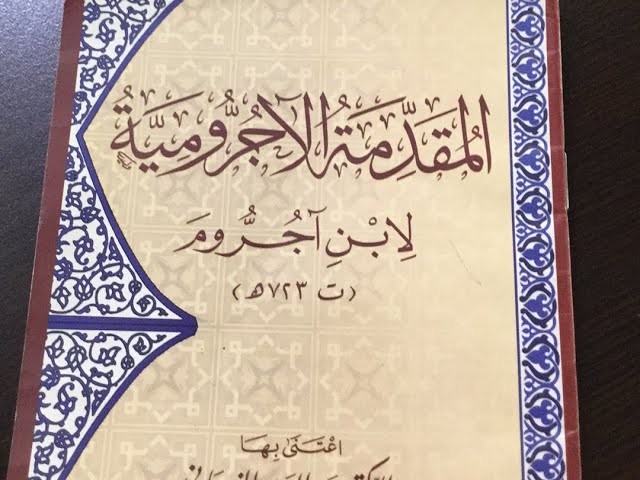 المُقَدِّمَةُ الآجُرُّومِيَّةُ
لِابْنِ آجُرُّومَ
(ت ٧٢٣هـ)
اعْتَنَى بِهَا